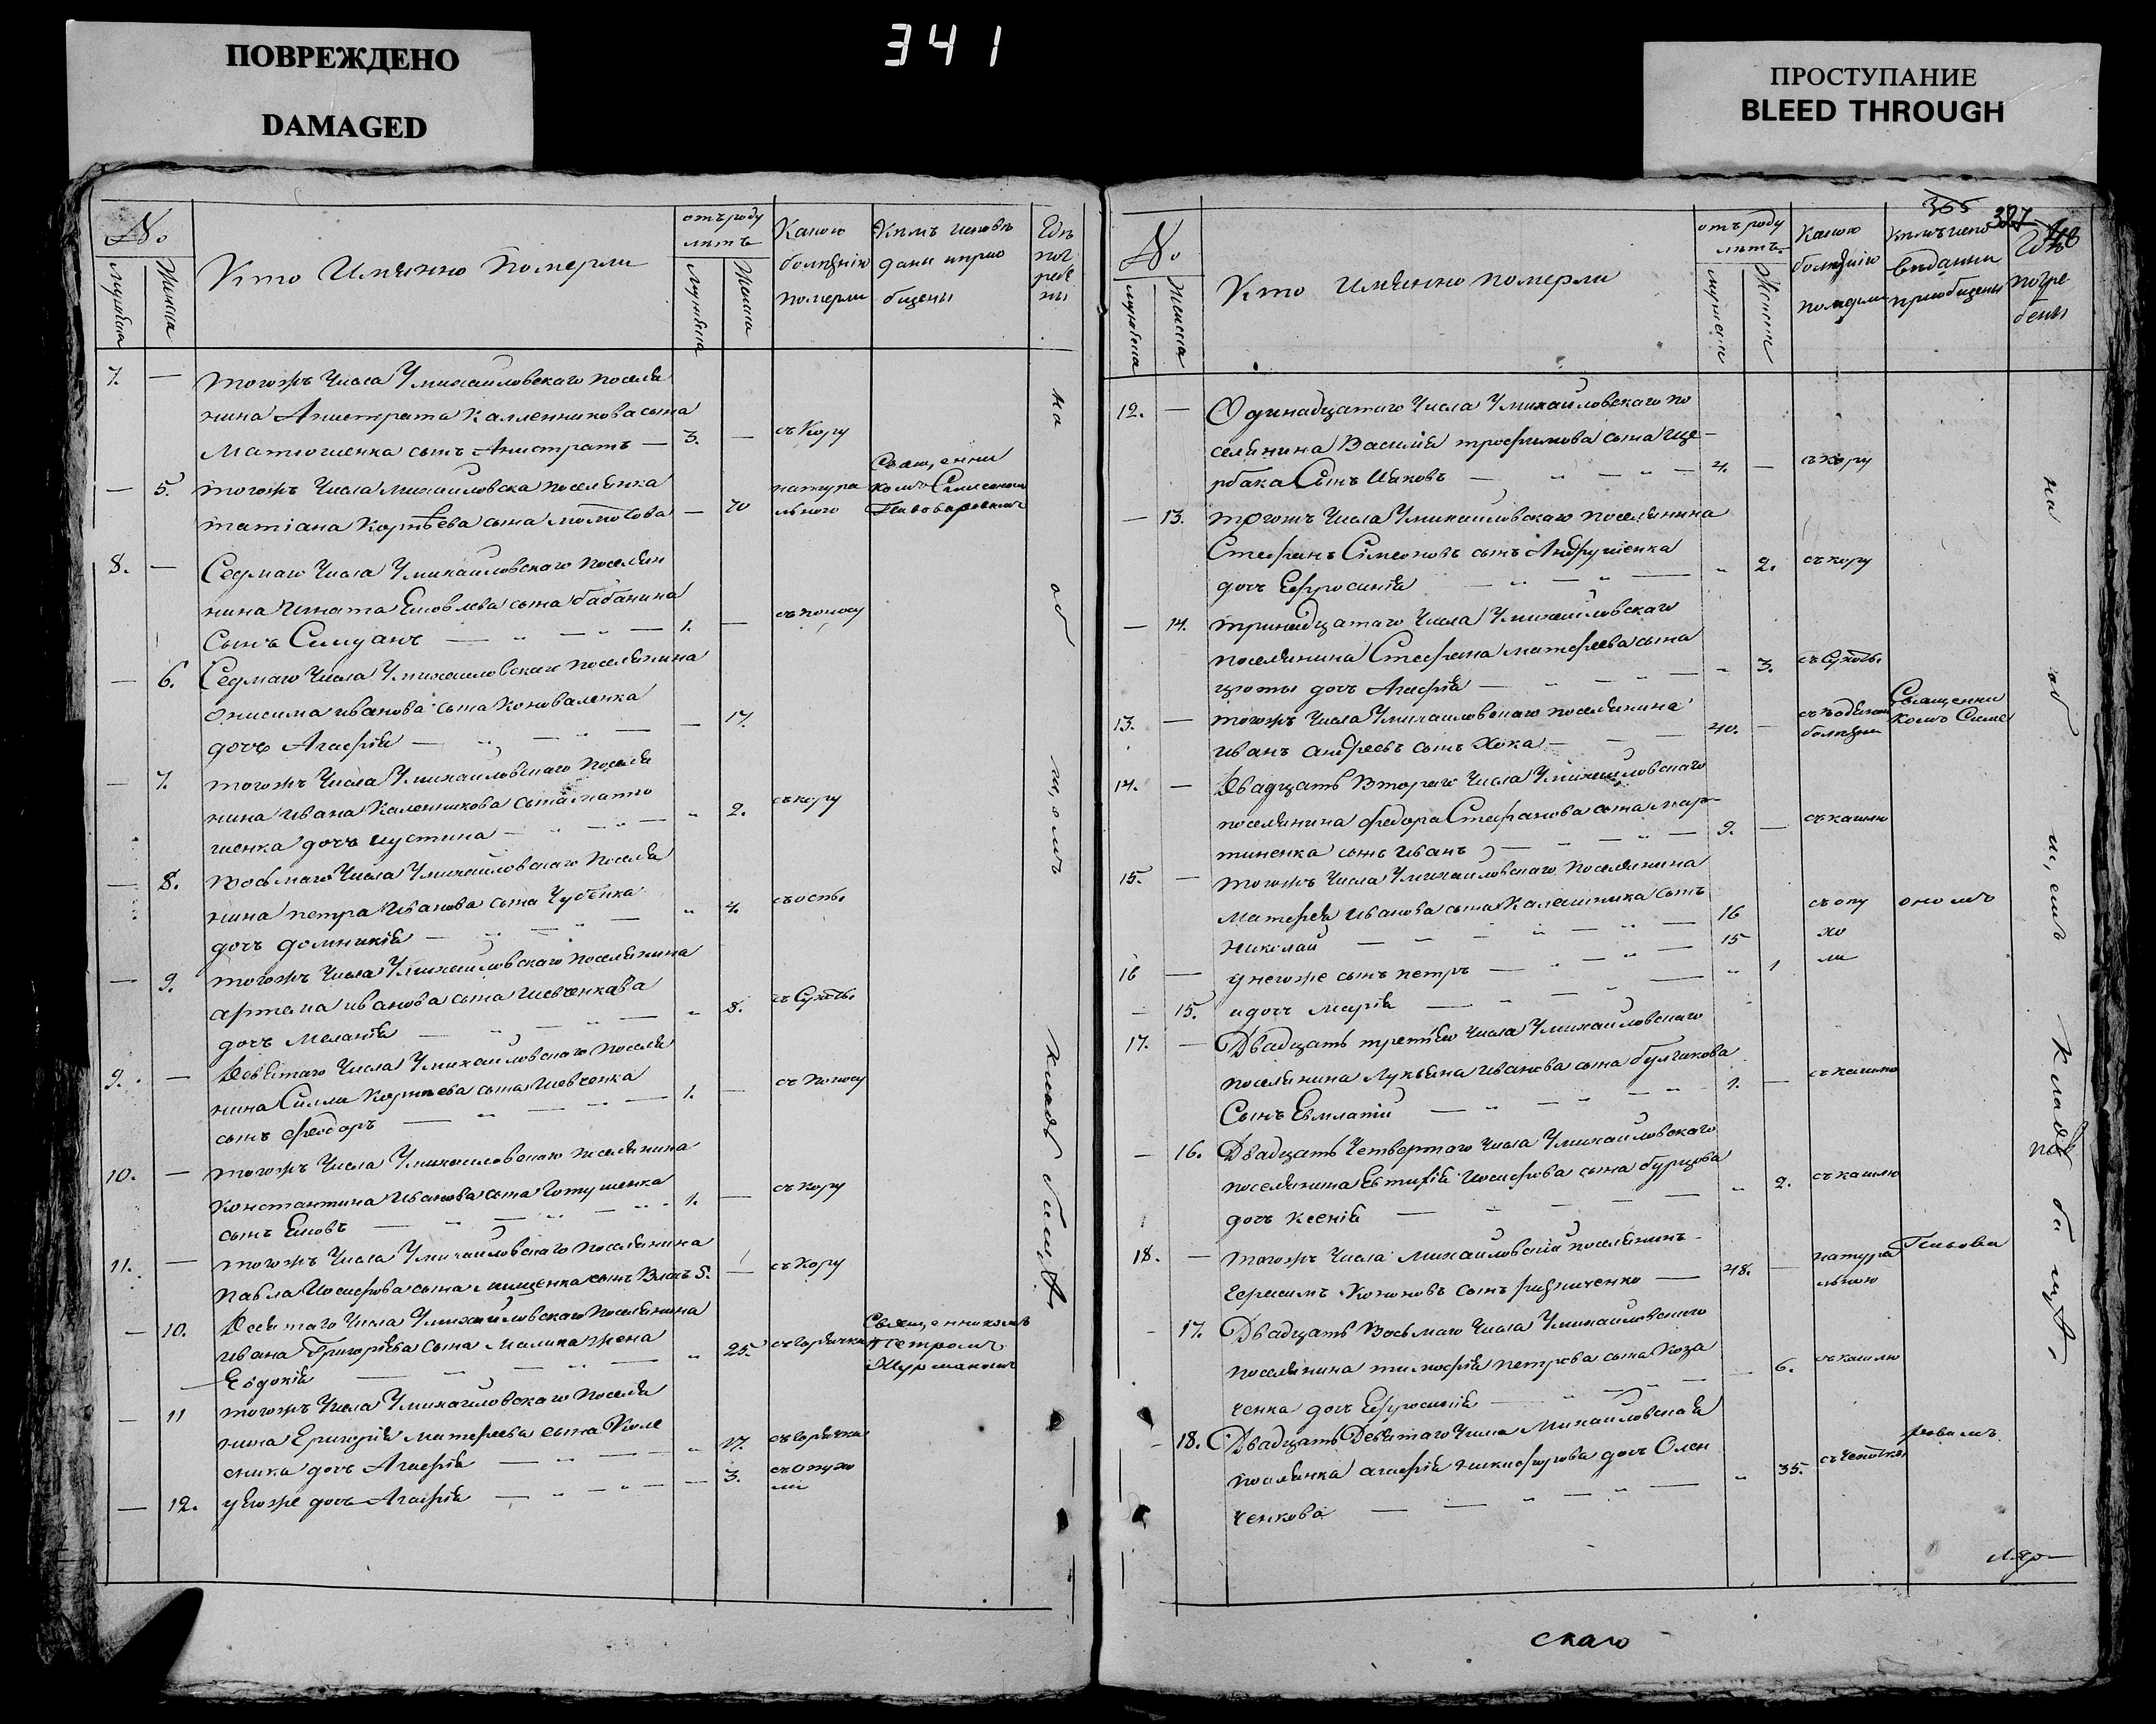 ПОВРЕЖДЕНО
DAMAGED
341
ПРОСТУПАНИЕ
BLEED THROUGH
№
Мужеска
Женска
Кто Имянно Померли
отъ роду
летъ
Мужеска
Женска
Какою
болезнію
померли
Кемъ исповѣ
даны и прио
бщены
Гдѣ
пог
ребе
ны
7. — тогожъ Числа Умихаиловскаго поселя
нина Анистрата Каленникова сына
Матюшенка сынъ Анистратъ — 3. — съ Кору
— 5. тогожъ Числа михаиловска поселянка
татіана Корнѣева сына — 70 натура
льного
Священни
комъ Симеоном
Пивоваровымъ
8. — Седмаго Числа Умихаиловскаго поселян
нина Игната Яковлева сына бабанина
Сынъ Симуанъ — 1. — съ поносу
— 6. Седмаго Числа Умихаиловскаго поселянина
Онисима иванова сына Коноваленка
дочь Агафія — 17.
— 7. тогожъ Числа Умихаиловскаго поселя
нина ивана Каленникова сына матю
шенка дочь иустина — 2. съ кору
— 8. восьмаго Числа Умихаиловскаго поселя
нина петра Иванова сына Чубенка
дочь домникія — 4. съ оспы
— 9. тогожъ Числа Умихаиловскаго поселянина
артема иванова сына шевченкова
дочь Меланія — 8. съ Сухоты
9. — Девятаго Числа Умихаиловскаго поселя
нина Силы Корнѣева сына шовченка
сынъ Феодоръ — 1. — съ поносу
10. — тогожъ Числа Умихаиловскаго поселянина
Константина Иванова сына
сынъ Яковъ — 1. — съ кору
11. — тогожъ Числа Умихаиловскаго поселянина
Павла Иосифова сына мищенка сынъ Власъ 5. — съ кору
— 10. Десятаго Числа Умихаиловскаго поселянина
ивана Григоріева сына малика жена
Евдокія — 25. съ горячки
Священникомъ
Петромъ
— 11 тогожъ Числа Умихаиловскаго поселя
нина Григорія матфеева сына Коле
сника дочь Агафія — 17. съ горячки
— 12. у егоже дочь Агафія — 3. съ опухо
ли
на об щемъ кладбищѣ
355
327
№
Мужеска
Женска
Кто имянно померли
отъ роду
летъ
мужеска
Женска
Какою
болезнію
померли
приобщены
Гдѣ
погре
бены
12. — Одинадцатаго Числа Умихаиловскаго по
селянина Василия трофимова сына ще-
рбака Сынъ Иаковъ — 4. — съ кору
— 13. тогожъ Числа Умихаиловскаго поселянина
Стефанъ Симеоновъ сынъ Андрушенка
дочь Ефросинія — 2. съ кору
— 14. тринадцатаго Числа Умихаиловскаго
поселянина Стефана матфеева сына
цюпы дочь Агафія — 3. съ Сухоты
13. — тогожъ Числа Умихаиловскаго поселянина
иванъ андреевъ сынъ Хока — 40. —
болезни
Священни
комъ Симе
14. — Двадцать Втораго Числа Умихаиловскаго
поселянина Федора Стефанова сына мар-
тиненка сынъ иванъ — 9. — съ кашлю
15. — тогожъ Числа Умихаиловскаго поселянина
Матфея Иванова сына Калашника сынъ
Николай — 16 съ опу
ономъ
16 — у негоже сынъ петръ — 15 хо
— 15. и дочь Марія — 1 ли
17. — Двадцать третяго Числа Умихаиловскаго
поселянина Лукьяна иванова сына булгакова
Сынъ Евмлатій — 1. — съ кашлю
— 16. Двадцать Четвертаго Числа Умихаиловскаго
поселянина Евтифія Иосифова сына бурцова
дочь Ксенія — 2. съ кашлю
18. — тогожъ Числа Михаиловскій поселянинъ
Герасимъ Кононовъ сынъ ризниченко — 48. — натура
льною
Пивова
— 17. Двадцать Восьмаго Числа Умихаиловскаго
поселянина тимофія петрова сына Коза
ченка дочь Ефросинія — 6. съ кашлю
— 18. Двадцать Девятаго Числа Михаиловская
поселянка агафія никифорова дочь Олен
ченкова — 35. съ чехотки
ровымъ
на об щемъ кладбищѣ
скаго